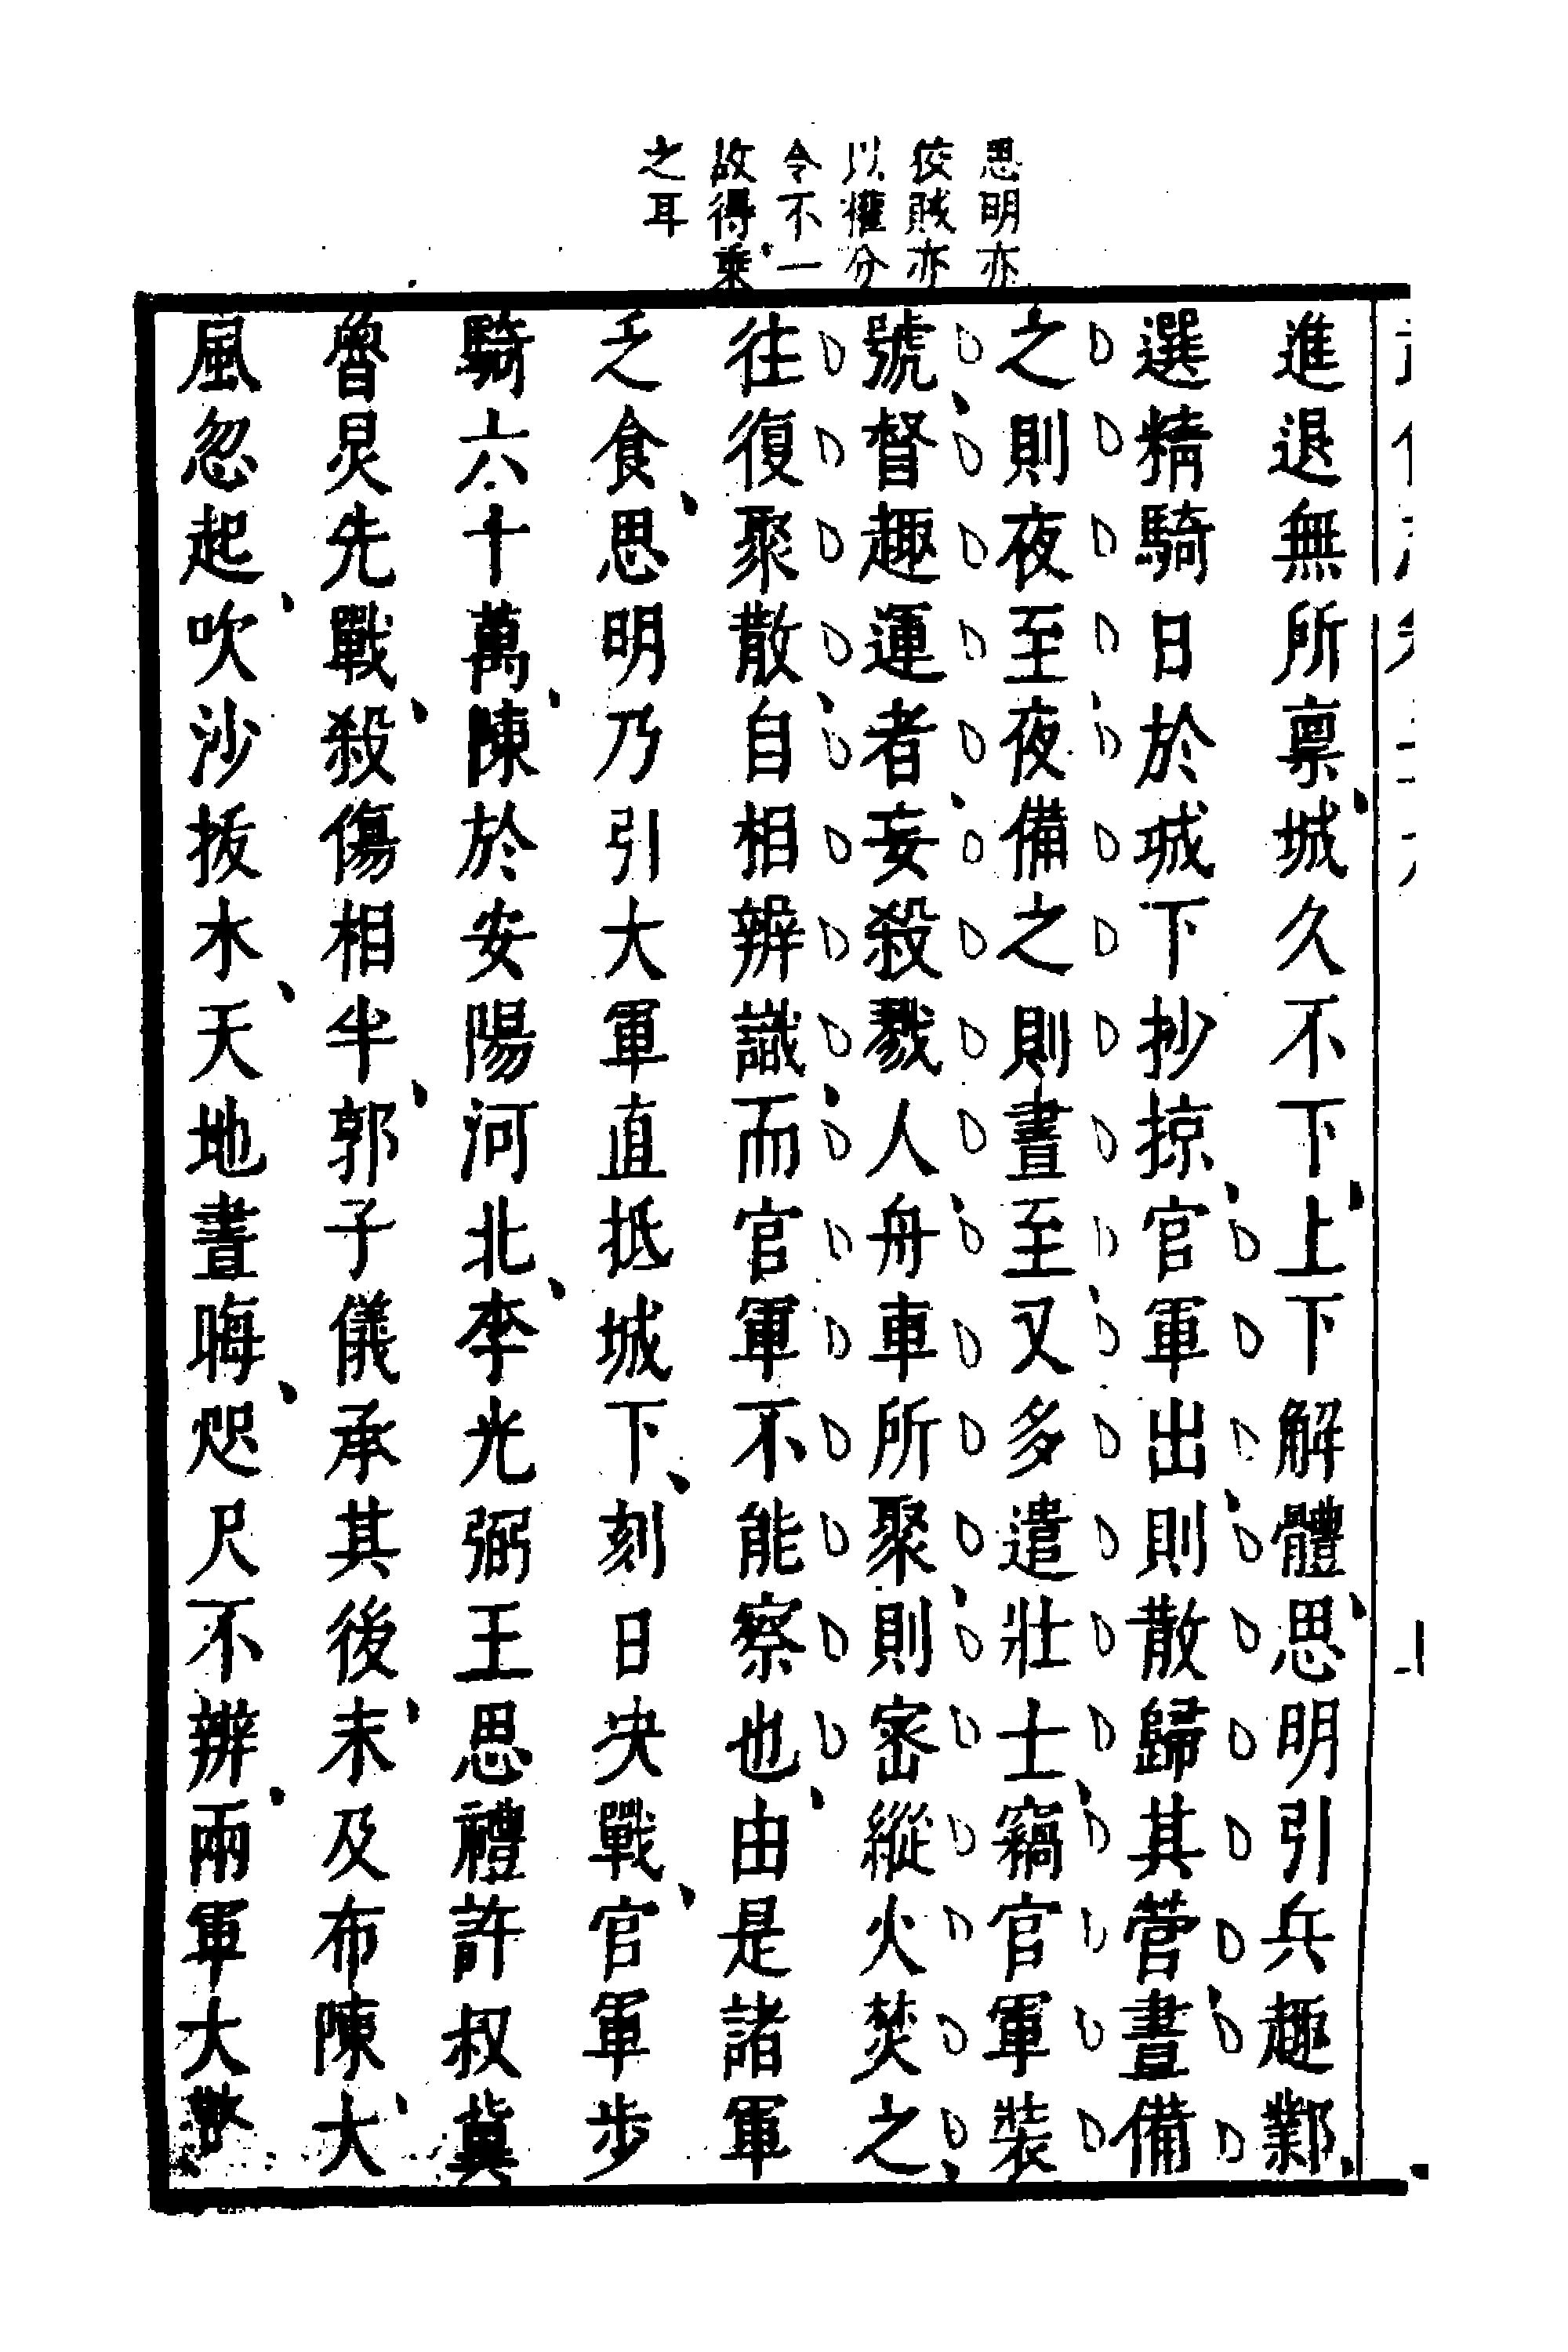 思明亦
狡賊亦
以權分
令不一
故得乗
之耳
進退無所禀城久不下上下解體思明引兵趣鄴
選精騎日於城下抄掠官軍出則散歸其營晝備
之則夜至夜備之則晝至又多遣壯士竊官軍裝
號督趣運者妄殺戮人舟車所聚則密縱火焚之
往復聚散自相辨識而官軍不能察也由是諸軍
乏食思明乃引大軍直抵城下刻日决戰官軍步
騎六十萬陳於安陽河北李光弼王思禮許叔冀
魯炅先戰殺傷相半郭子儀承其後未及布陳大
風忽起吹沙拔木天地晝晦咫尺不辨兩軍大